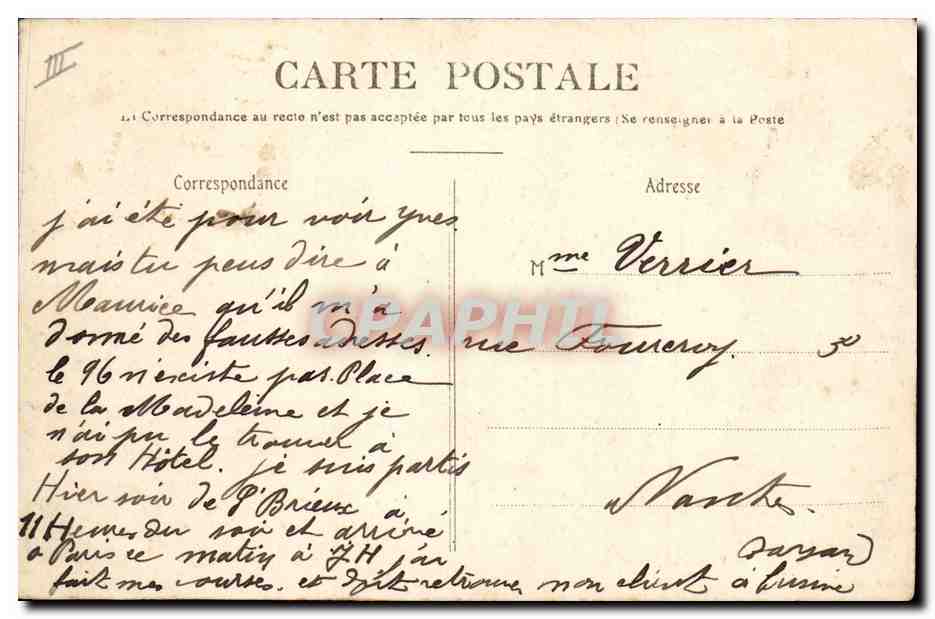 III
CARTE POSTALE
La Correspondance au recto n'est pas acceptée par tous les pays étrangers (Se renseigner à la Poste
Correspondance
j'ai été pour voir yves.
mais tu peus dire à
Maurice qu'il m'a
donné des fausses adresses.
le 96 n'existe pas. Place
de la Madeleine et je
n'ai pu le trouver à
son Hôtel. je suis partis
Hier soir de St Brieux à
11 Heures du soir et arrivé
a Paris ce matin à 7H j'ai
fait mes courses. et dois retrouver mon client à
Adresse
Mme Verrier
rue Fourcroy. 30
Nantes.
CPAPHIL